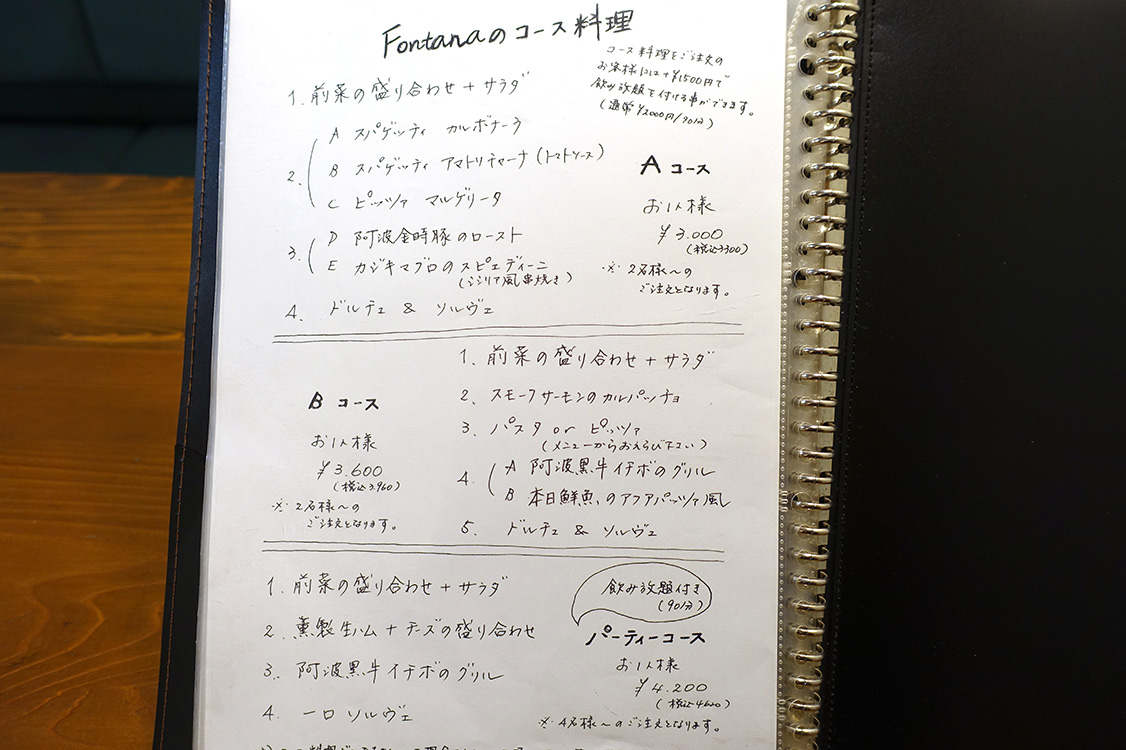 Fontanaのコース料理
コース料理をご注文の
お客様には+¥1500円で
飲み放題を付ける事ができます。
(通常¥2000円/90分)
1. 前菜の盛り合わせ+サラダ
2. A スパゲッティ カルボナーラ
B スパゲッティ アマトリチャーナ(トマトソース)
C ピッツァ マルゲリータ
3. D 阿波金時豚のロースト
E カジキマグロのスピエディーニ
(シシリア風串焼き)
4. ドルチェ & ソルヴェ
A コース
お1人様
¥3.000
(税込3300)
※ 2名様〜の
ご注文となります。
B コース
お1人様
¥3.600
(税込3.960)
※ 2名様〜の
ご注文となります。
1. 前菜の盛り合わせ+サラダ
2. スモークサーモンのカルパッチョ
3. パスタ or ピッツァ
(メニューからおえらび下さい)
4. A 阿波黒牛イチボのグリル
B 本日鮮魚、のアクアパッツァ風
5. ドルチェ & ソルヴェ
飲み放題付き
(90分)
パーティーコース
お1人様
¥4.200
(税込4620)
※ 4名様〜のご注文となります。
1. 前菜の盛り合わせ+サラダ
2. 燻製生ハム+チーズの盛り合わせ
3. 阿波黒牛イチボのグリル
4. 一口ソルヴェ